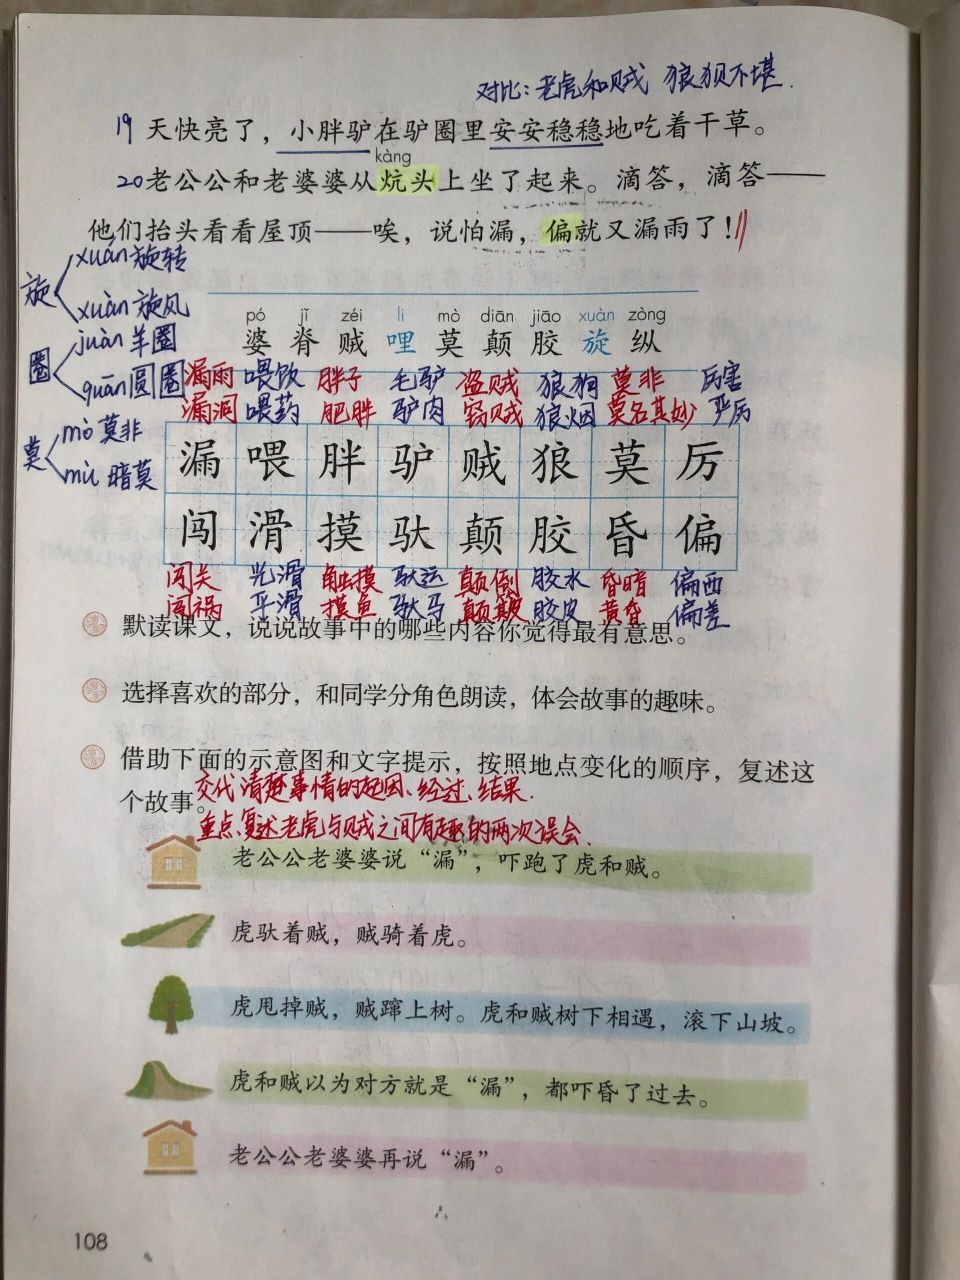 对比：老虎和贼 狼狈不堪.
19 天快亮了，小胖驴在驴圈里安安稳稳地吃着干草。
kàng
20 老公公和老婆婆从炕头上坐了起来。滴答，滴答——
他们抬头看看屋顶——唉，说怕漏，偏就又漏雨了！
旋 xuán 旋转
xuàn 旋风
圈 juàn 羊圈
quān 圆圈
莫 mò 莫非
mù 暗莫
pó jǐ zéi li mò diān jiāo xuàn zòng
婆 脊 贼 哩 莫 颠 胶 旋 纵
漏雨 喂饮 胖子 毛驴 盗贼 狼狗 莫非 厉害
漏洞 喂药 肥胖 驴肉 窃贼 狼烟 莫名其妙 严厉
漏 喂 胖 驴 贼 狼 莫 厉
闯 滑 摸 驮 颠 胶 昏 偏
闯关 光滑 触摸 驮运 颠倒 胶水 昏暗 偏西
闯祸 平滑 摸鱼 驮马 颠簸 胶皮 黄昏 偏差
默读课文，说说故事中的哪些内容你觉得最有意思。
选择喜欢的部分，和同学分角色朗读，体会故事的趣味。
借助下面的示意图和文字提示，按照地点变化的顺序，复述这
个故事。
交代清楚事情的起因、经过、结果.
重点复述老虎与贼之间有趣的两次误会.
老公公老婆婆说“漏”，吓跑了虎和贼。
虎驮着贼，贼骑着虎。
虎甩掉贼，贼蹿上树。虎和贼树下相遇，滚下山坡。
虎和贼以为对方就是“漏”，都吓昏了过去。
老公公老婆婆再说“漏”。
108